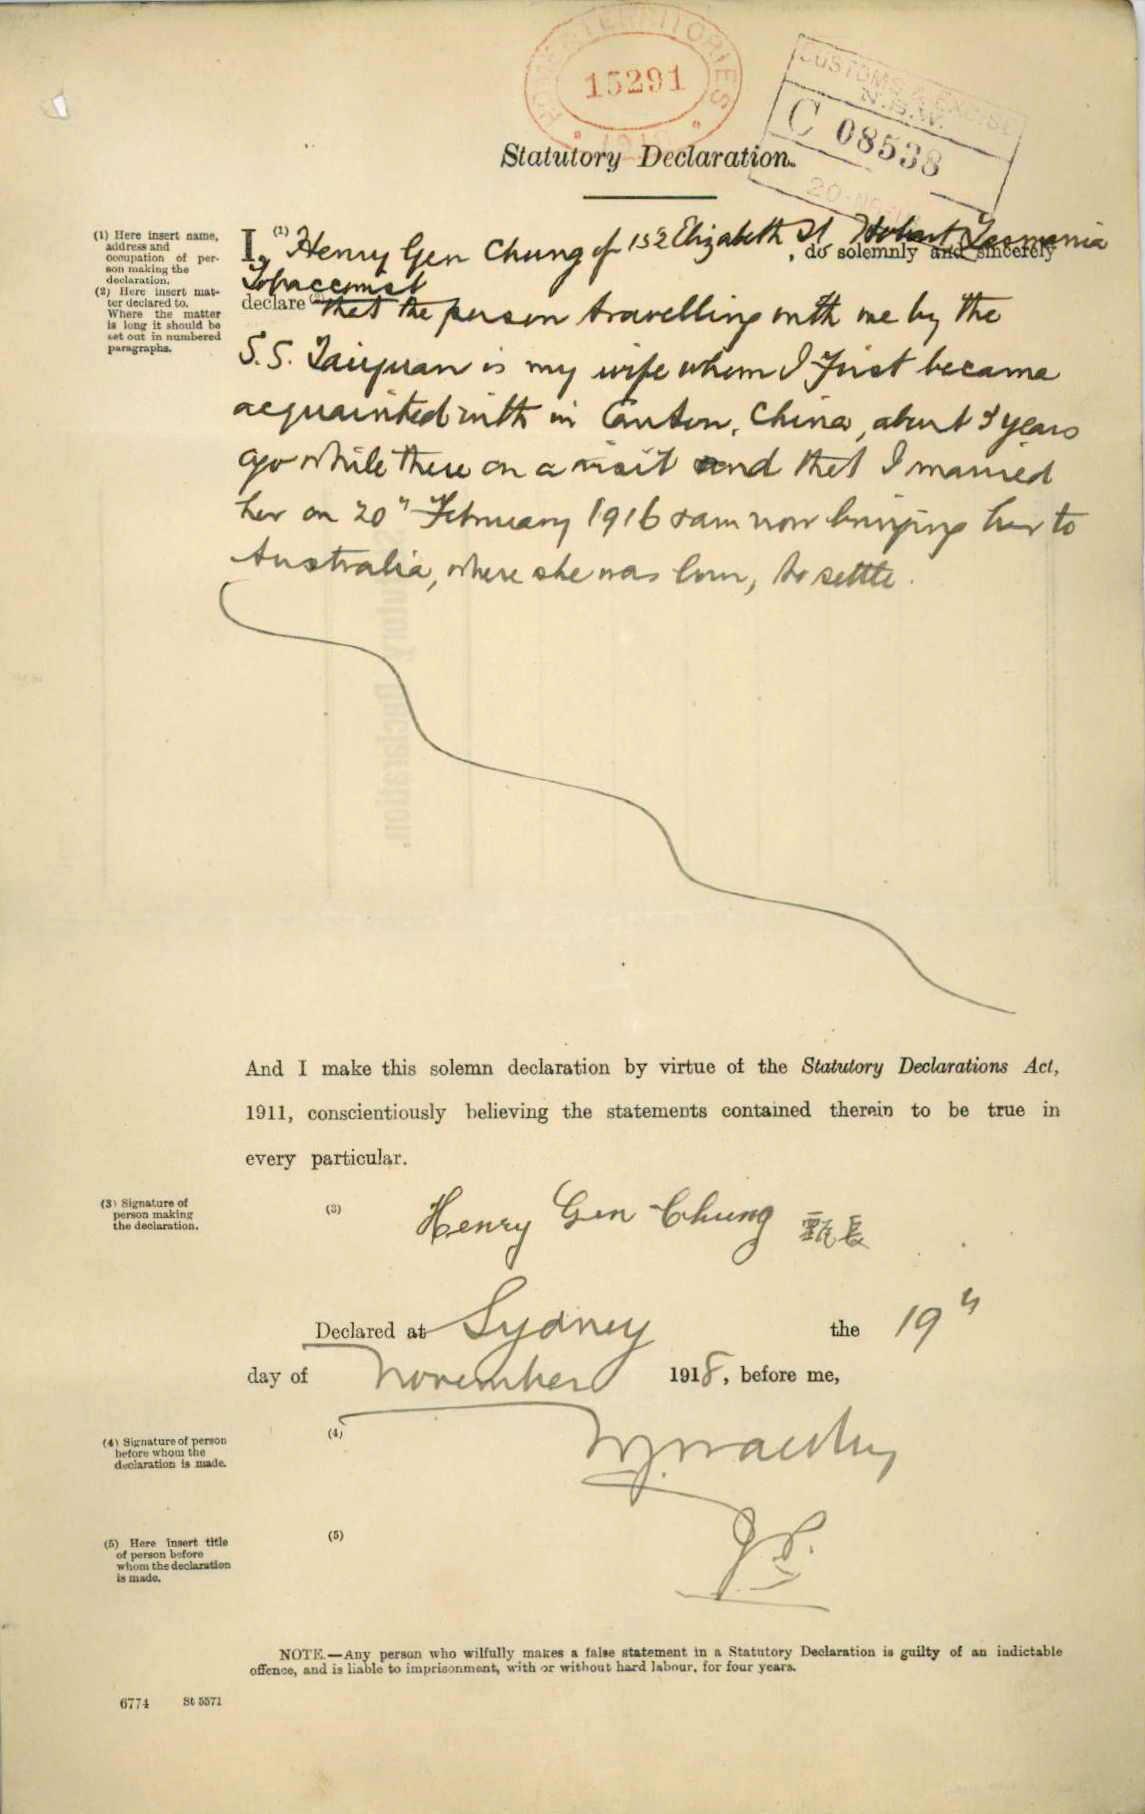 HOME & TERRITORIES
15291
1918
CUSTOMS & EXCISE
N.S.W.
C 08538
20-NO
Statutory Declaration.
(1) Here insert name,
address and
occupation of per-
son making the
declaration.
(2) Here insert mat-
ter declared to.
Where the matter
is long it should be
set out in numbered
paragraphs.
I, (1) Henry Gen Chung of 152 Elizabeth St Hobart Tasmania
Tobacconist , do solemnly and sincerely
declare (2) that the person travelling with me by the
S.S. Taiyuan is my wife whom I first became
acquainted with in Canton, China, about 3 years
ago while there on a visit and that I married
her on 20" February 1916 & am now bringing her to
Australia, where she was born, to settle.
And I make this solemn declaration by virtue of the Statutory Declarations Act,
1911, conscientiously believing the statements contained therein to be true in
every particular.
(3) Signature of
person making
the declaration.
(3) Henry Gen Chung 甄長
Declared at Sydney the 19"
day of November 1918, before me,
(4) Signature of person
before whom the
declaration is made.
(4)
(5) Here insert title
of person before
whom the declaration
is made.
(5) J.P.
NOTE.—Any person who wilfully makes a false statement in a Statutory Declaration is guilty of an indictable
offence, and is liable to imprisonment, with or without hard labour, for four years.
6774 St 5571